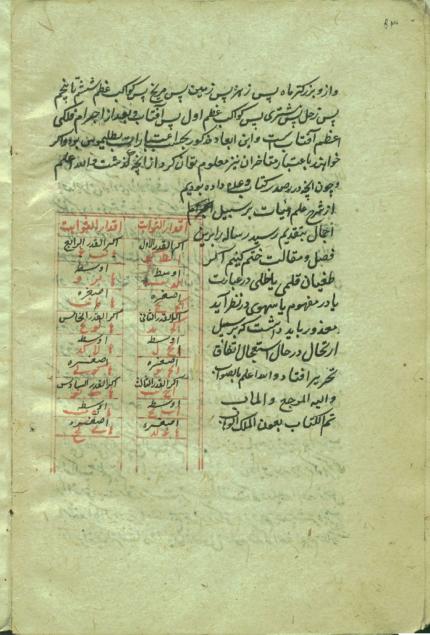 ۶۳
و از و بزرکتر ماه پس زهره پس زمین پس مریخ پس کواکب عظم ششم تا پنجم
پس زحل پس مشتری پس کواکب عظم اول پس آفتاب و بعد از اجرام فلکی
اعظم آفتاب است و این ابعاد مذکور بجهة اعتبارات بطلمیوس بود و اکر
خواهند باعتبار متاخران نیز معلوم توان کرد از انچه کذشت والله اعلم
و چون انچه در صدر کتاب وعده داده بودیم
از شرح علم هیات بر سبیل
اجمال بتقدیم رسید رساله را برین
فصل و مقالت ختم کنیم اکر
طغیان قلمی یا خللی در عبارت
یا در مفهوم یا سهوی در نظر آید
معذور باید داشت که بر سبیل
ارتحال در حال استعجال اتفاق
تحریر افتاد والله اعلم بالصواب
و الیه المرجع و المآب
تم الکتاب بعون الملک
اقدار الثوابت
اکبر القدر الاول
اوسط
اصغره
اکبر القدر الثانی
اوسط
اصغره
اکبر القدر الثالث
اوسطه
اصغره
اقدار الثوابت
اکبر القدر الرابع
اوسط
اصغره
اکبر القدر الخامس
اوسط
اصغره
اکبر القدر السادس
اوسطه
اصغره